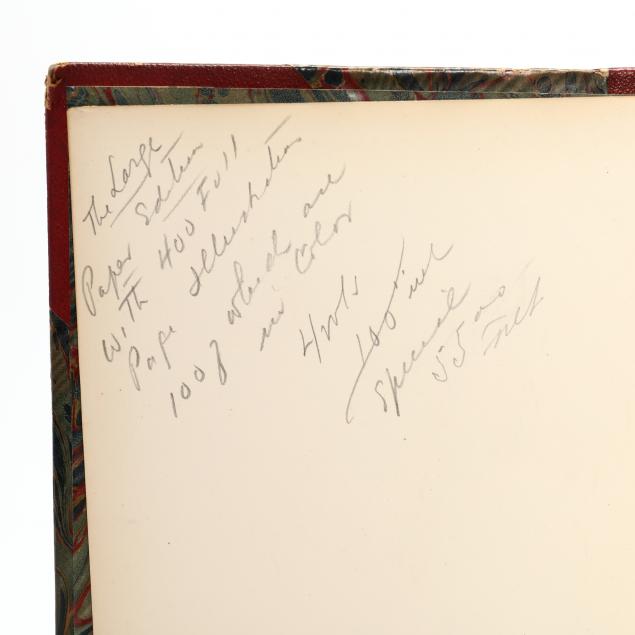 The Large
Paper Edition
with 400 Full
Page Illustrations
100 of which are
in Color
4 vols
100
Special
55 00